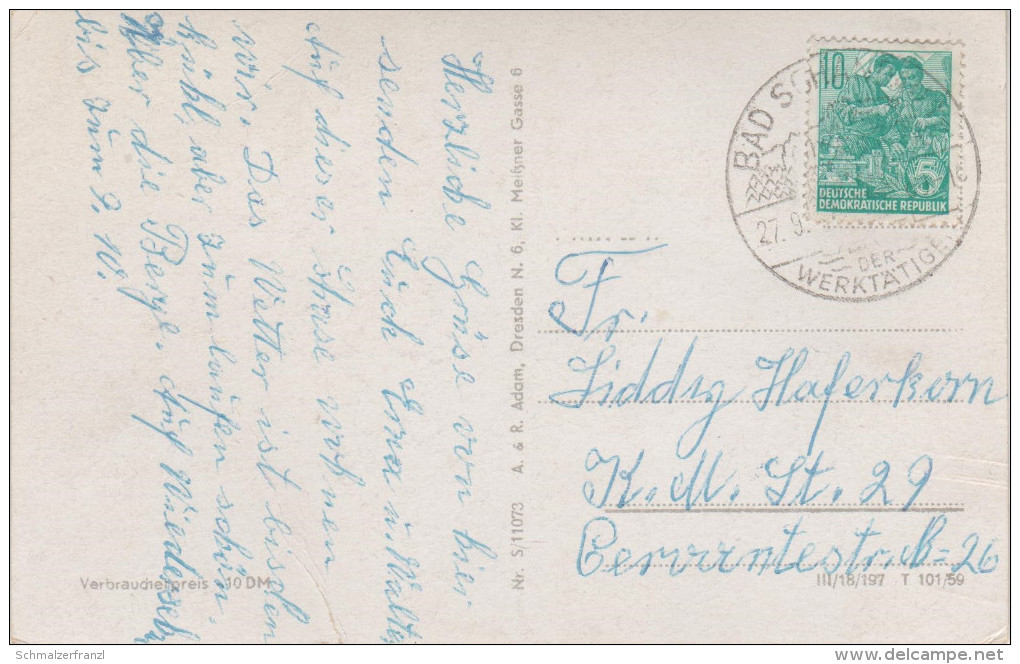 Herzliche Grüse von hier
senden Euch Erna u. Walter
Auf dieser Strase wohnen
wir. Das Wetter ist bischen
kühl, aber zum laufen schön.
Über die Berge. Auf Wiedersehn
bis zum 9. 10.
Nr. S/11073 A. & R. Adam, Dresden N. 6, Kl. Meißner Gasse 6
Verbraucherpreis -10 DM
10
5
DEUTSCHE
DEMOKRATISCHE REPUBLIK
BAD SCH
27. 9.
DER
WERKTÄTIGE
Fr.
Liddy Haferkorn
K. M. St. 29
Cervantestr. 26
III/18/197 T 101/59
Schmalzerfranzl
delcampe.net